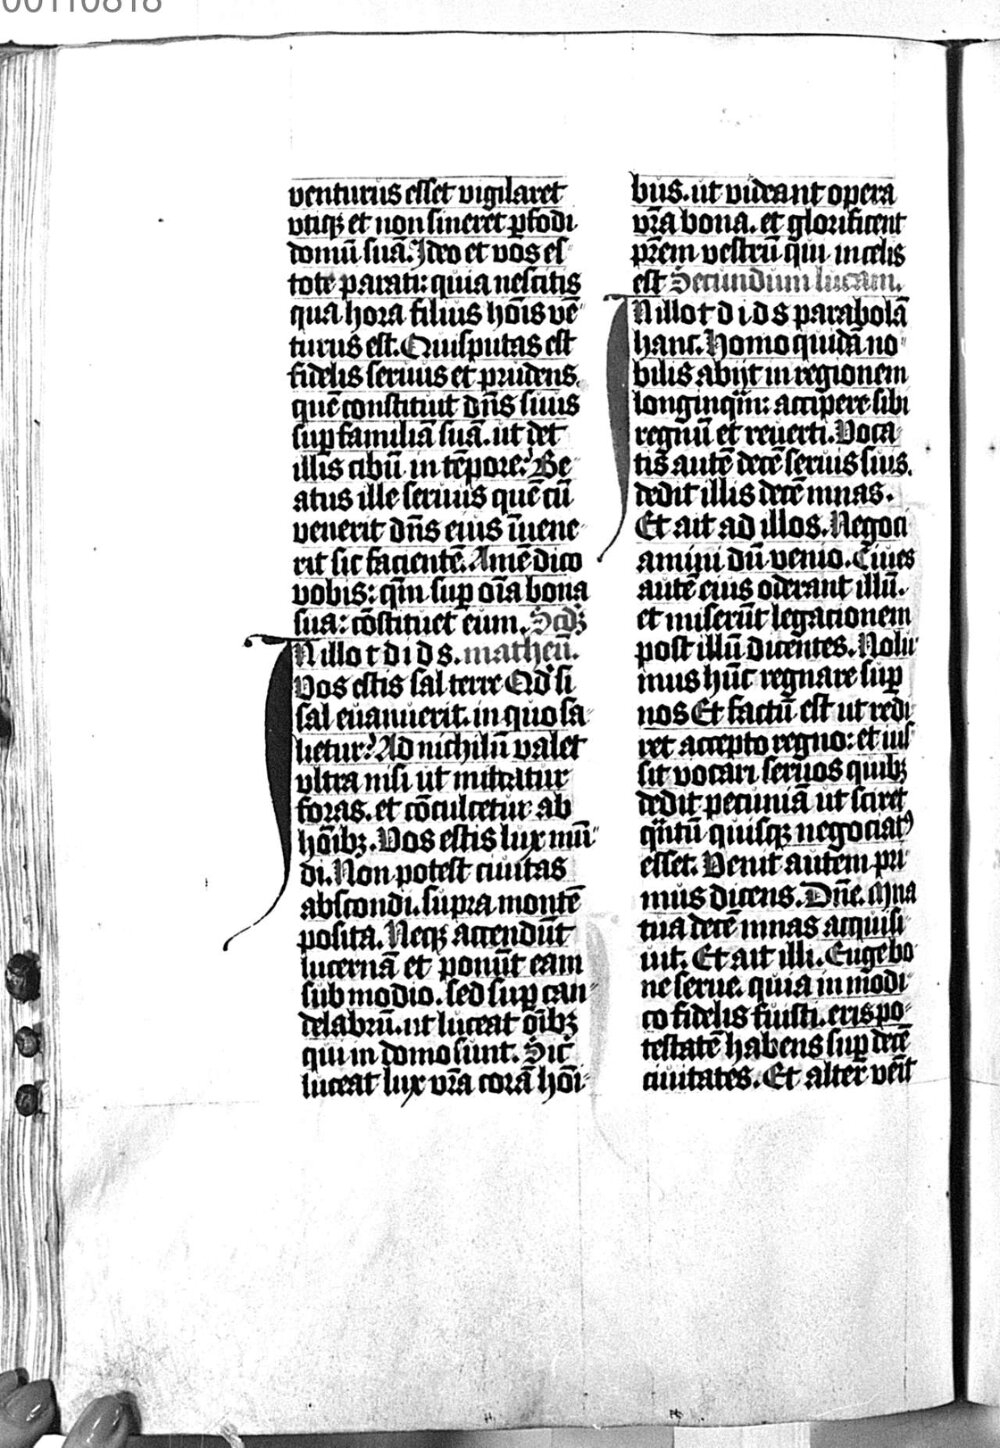 00110818
venturus esset vigilaret
vtiqȝ et non sineret ꝑfodi
domū suā. Ideo et vos es
tote parati: quia nescitis
qua hora filius hōis vē
turus est. Quis putas est
fidelis seruus et prudens.
quē constituit dn̄s suus
suꝑ familiā suā. ut det
illis cibū in tēpore? Be
atus ille seruus quē cū
venerit dn̄s eius īuene
rit sic facientē. Amē dico
vobis: qm̄ suꝑ oīa bona
sua: cōstituet eum. Scdȝ
In illo t d i d s. matheū.
Vos estis sal terre Qd' si
sal euanuerit. in quo sa
lietur? Ad nichilū valet
vltra nisi ut mittatur
foras. et cōculcetur ab
hōibȝ. Vos estis lux mū
di. Non potest ciuitas
abscondi. supra montē
posita. Neqȝ accendūt
lucernā et ponūt eam
sub modio. sed suꝑ can
delabrū. ut luceat oībȝ
qui in domo sunt. Sic
luceat lux vr̄a corā hōi
bus. ut videant opera
vr̄a bona. et glorificent
pr̄em vestrū qui in celis
est Secundum lucam.
In illo t d i d s parabolā
hanc. Homo quidā no
bilis abijt in regionem
longinqūm: accipere sibi
regnū et reuerti. Voca
tis autē decē seruis suis.
dedit illis decē mnas.
Et ait ad illos. Negoci
amini dū venio. Ciues
autē eius oderant illū.
et miserūt legacionem
post illū dicentes. Nolu
mus hūc regnare suꝑ
nos Et factū est ut redi
ret accepto regno: et ius
sit vocari seruos quibȝ
dedit pecuniā ut sciret
qn̄tū quisqȝ negociatꝯ
esset. Venit autem pri
mus dicens. Dn̄e. Mna
tua decē mnas acquisi
uit. Et ait illi. Euge bo
ne serue. quia in modi
co fidelis fuisti. eris po
testatē habens suꝑ decē
ciuitates. Et alter venit